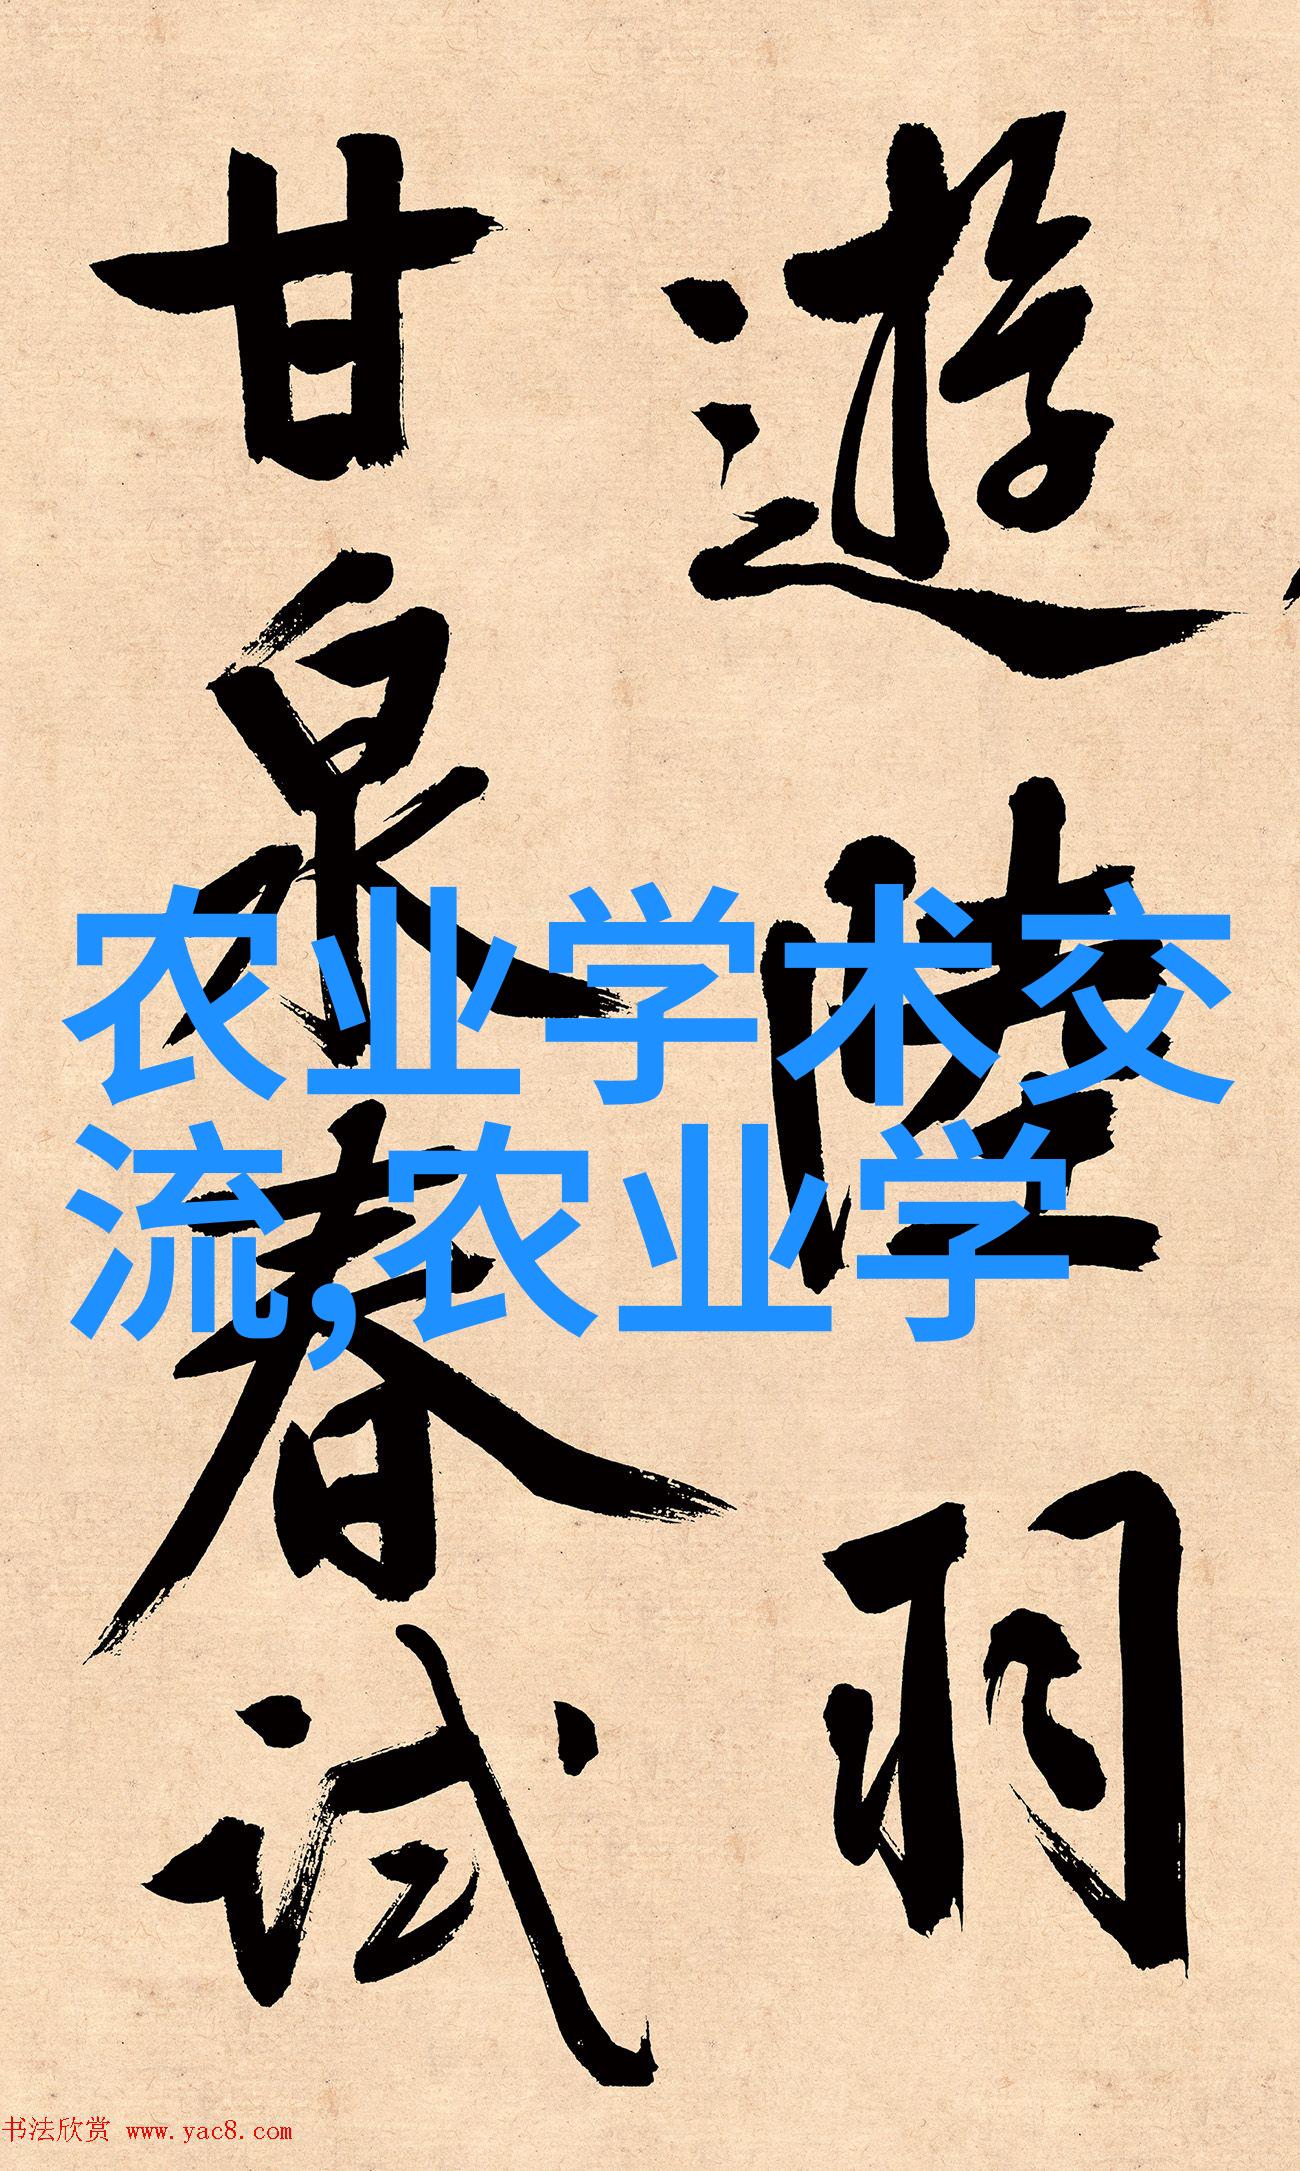 遊陸羽
甘泉春试
农业学术交
流,农业学
书法欣赏 www.yac8.com